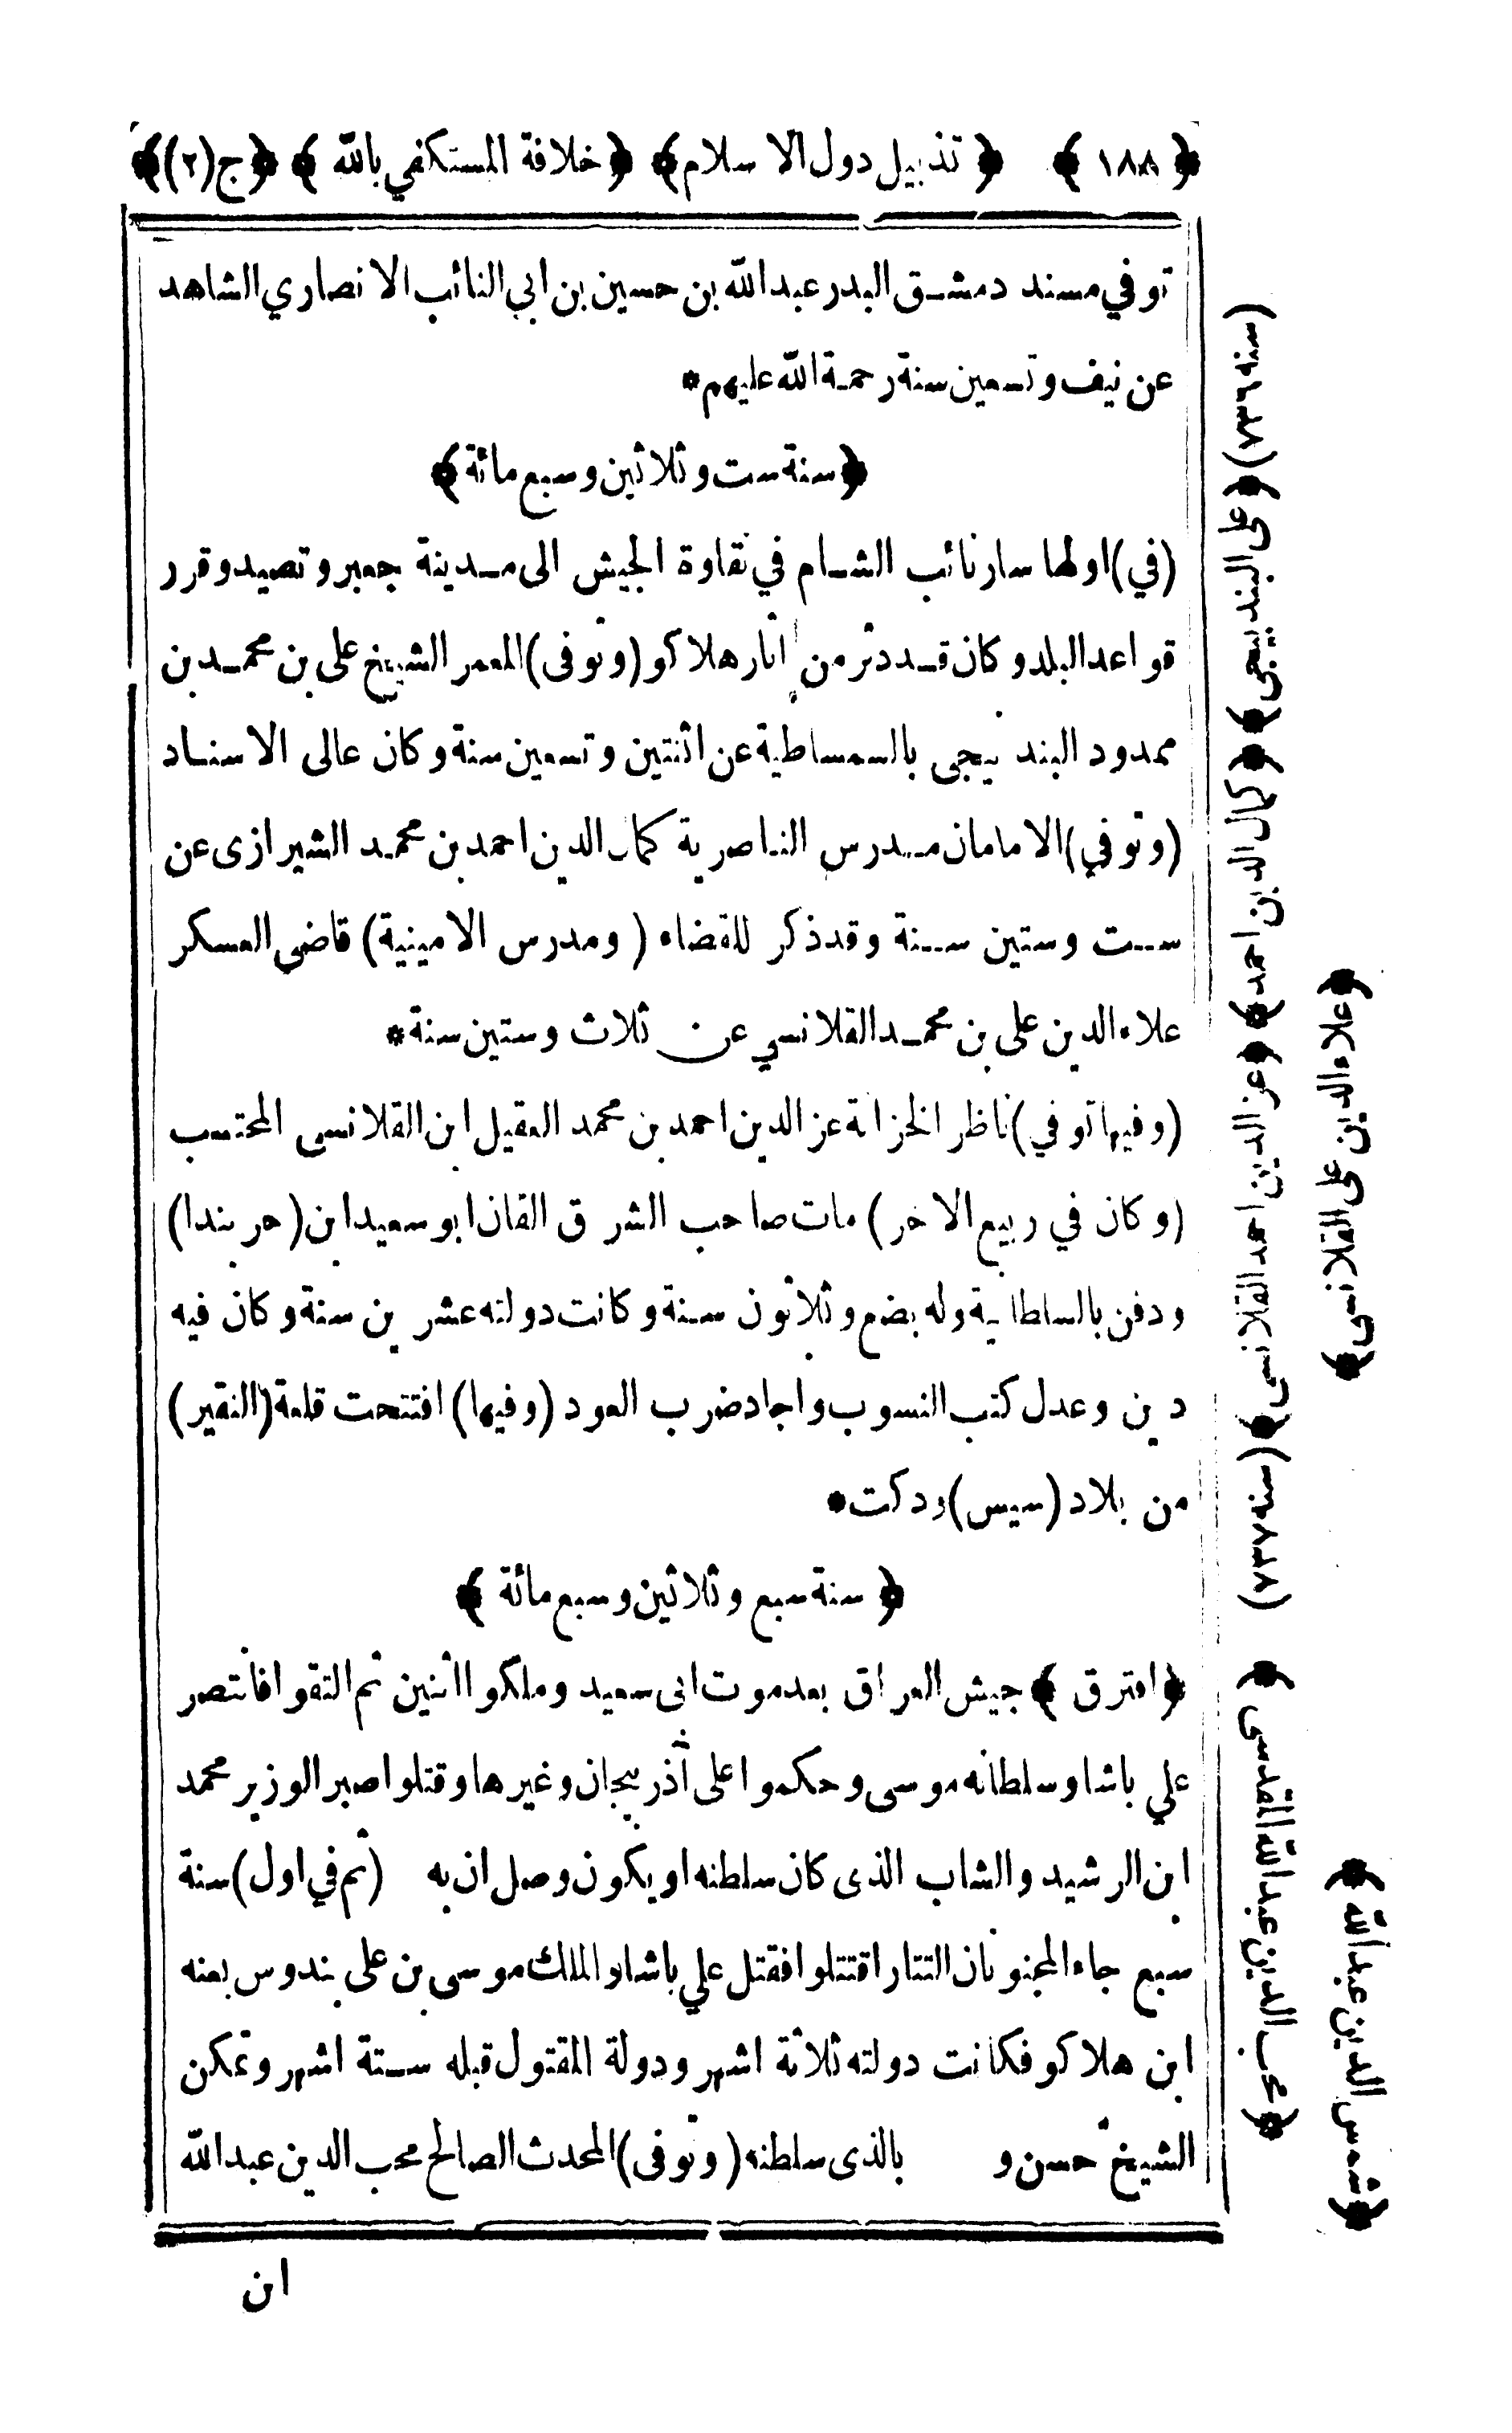 ﴿ ١٨٨ ﴾ ﴿ تذييل دول الاسلام ﴾ ﴿ خلافة المستكفي بالله ﴾ ﴿ ج (٢) ﴾
توفي مسند دمشق البدر عبدالله بن حسين بن ابي التائب الانصاري الشاهد
عن نيف وتسعين سنة رحمة الله عليهم *
﴿ سنة ست وثلاثين وسبع مائة ﴾
(في) اولها سار نائب الشام في نقاوة الجيش الى مدينة جعبر وتصيد وقرر
قواعد البلد وكان قد دثر من آثار هلاكو (وتوفى) المعمر الشيخ على بن محمد بن
ممدود البند نيجى بالسمساطية عن اثنتين وتسعين سنة وكان عالى الاسناد
(وتوفي) الامامان مدرس الناصرية كمال الدين احمد بن محمد الشيرازى عن
ست وستين سنة وقد ذكر للقضاء (ومدرس الامينية) قاضى العسكر
علاء الدين على بن محمد القلانسي عن ثلاث وستين سنة *
(وفيها توفي) ناظر الخزانة عز الدين احمد بن محمد العقيل ابن القلانسى المحتسب
(وكان في ربيع الاخر) مات صاحب الشرق القان ابو سعيد ابن (خربندا)
ودفن بالسلطانية وله بضع وثلاثون سنة وكانت دولته عشرين سنة وكان فيه
دين وعدل كتب النسوب واجاد ضرب العود (وفيها) افتتحت قلعة (النقير)
من بلاد (سيس) ودكت *
﴿ سنة سبع وثلاثين وسبع مائة ﴾
﴿ افترق ﴾ جيش العراق بعد موت ابى سعيد وملكوا اثنين ثم التقوا فانتصر
علي باشا وسلطانه موسى وحكموا على آذربيجان وغيرها وقتلوا صبر الوزير محمد
ابن الرشيد والشاب الذى كان سلطنه اويكون وصل ان به (ثم في اول) سنة
سبع جاء المجنونان التتار اقتتلوا فقتل علي باشا والملك موسى بن على بندوس بعنه
ابن هلاكو فكانت دولته ثلاثة اشهر ودولة المقتول قبله ستة اشهر وتمكن
الشيخ حسن و بالذى سلطنه (وتوفى) المحدث الصالح محب الدين عبدالله
ان
(سنه ٧٣٦) ﴿ على البند نيجى ﴾ ﴿ كمال الدين احمد ﴾ ﴿ عز الدين احمد القلانسى ﴾ (سنه ٧٣٧)
﴿ علاء الدين على القلانسى ﴾
﴿ محب الدين عبد الله المقدسى ﴾
﴿ شمس الدين عبد الله ﴾